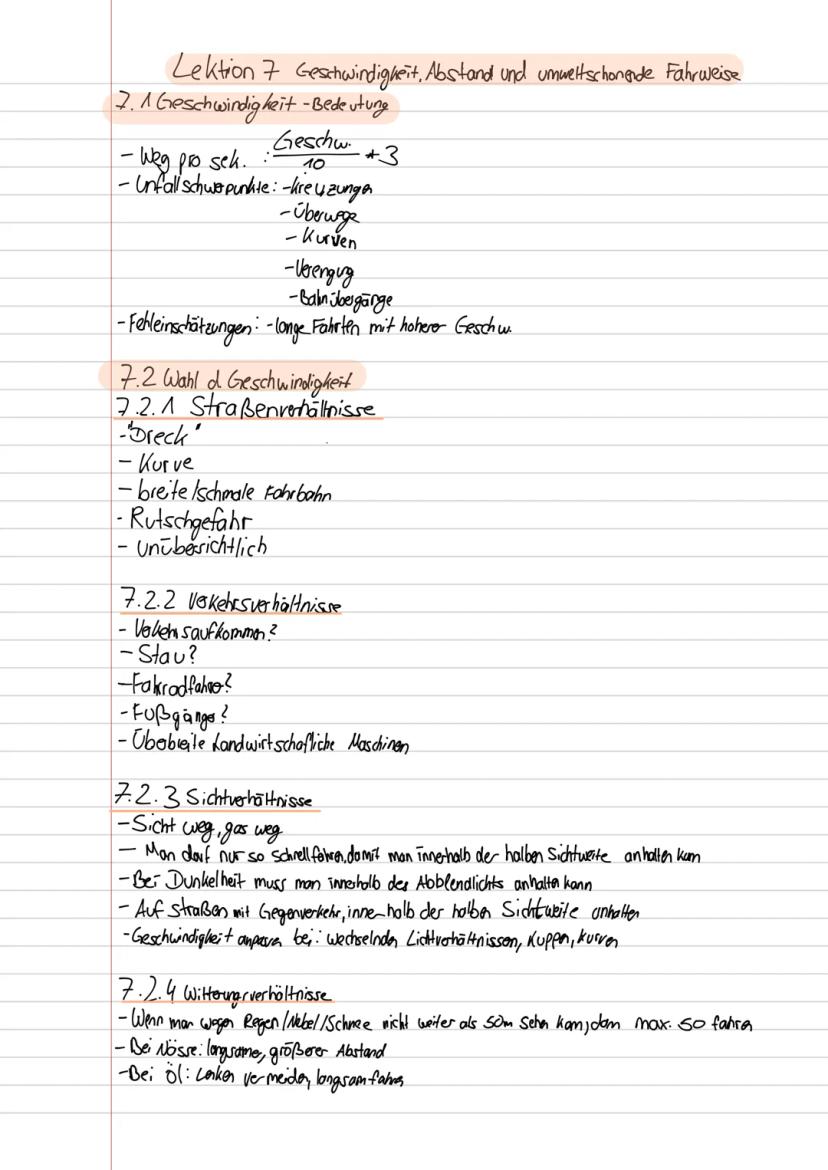 Lektion 7 Geschwindigkeit, Abstand und umweltschonende Fahrweise
7.1 Geschwindigkeit - Bedeutung
- Weg pro sek. : Geschw. / 10 * 3
- Unfallschwerpunkte: - Kreuzungen
- Überwege
- Kurven
- Verengung
- Bahnübergänge
- Fehleinschätzungen: - lange Fahrten mit hoherer Geschw.
7.2 Wahl d. Geschwindigkeit
7.2.1 Straßenverhältnisse
- "Dreck"
- Kurve
- breite/schmale Fahrbahn
- Rutschgefahr
- unübersichtlich
7.2.2 Verkehrsverhältnisse
- Verkehrsaufkommen?
- Stau?
- Fahrradfahrer?
- Fußgänger?
- Überbreite Landwirtschaftliche Maschinen
7.2.3 Sichtverhältnisse
- Sicht weg, gas weg
- Man darf nur so schnell fahren, damit man innerhalb der halben Sichtweite anhalten kann
- Bei Dunkelheit muss man innerhalb des Abblendlichts anhalten kann
- Auf Straßen mit Gegenverkehr, innerhalb der halben Sichtweite anhalten
- Geschwindigkeit anpassen bei: wechselnden Lichtverhältnissen, Kuppen, kurven
7.2.4 Witterungsverhältnisse
- Wenn man wegen Regen/Nebel/Schnee nicht weiter als 50m sehen kann, dann max. 50 fahren
- Bei Nässe: langsamer, größerer Abstand
- Bei Öl: Lenken vermeiden, langsam fahren